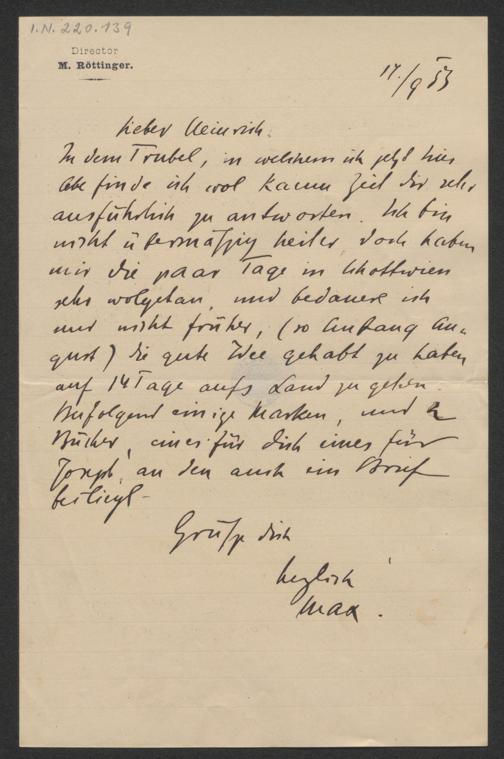 I.N. 220.139
Director
M. Röttinger.
17./9 53
Lieber Heinrich.
In dem Trubel, in welchem ich jetzt hier
lebe finde ich wol kaum Zeit dir sehr
ausführlich zu antworten. Ich bin
nicht übermäßig heiter, doch haben
mir die paar Tage in Schottwien
sehr wolgetan, und bedauere ich
nur nicht früher, (so Anfang Au=
gust) die gute Idee gehabt zu haben
auf 14 Tage aufs Land zu gehen.
Anfolgend einige Marken, und 2
Bücher, eines für dich eines für
Joseph, an den auch ein Brief
beiliegt -
Grüße dich
herzlich
Max.